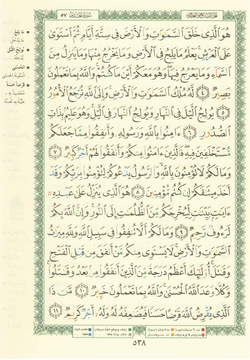 هُوَ ٱلَّذِى خَلَقَ ٱلسَّمَٰوَٰتِ وَٱلْأَرْضَ فِى سِتَّةِ أَيَّامٍ ثُمَّ ٱسْتَوَىٰ
عَلَى ٱلْعَرْشِ يَعْلَمُ مَا يَلِجُ فِى ٱلْأَرْضِ وَمَا يَخْرُجُ مِنْهَا وَمَا يَنزِلُ مِنَ
ٱلسَّمَآءِ وَمَا يَعْرُجُ فِيهَا وَهُوَ مَعَكُمْ أَيْنَ مَا كُنتُمْ وَٱللَّهُ بِمَا تَعْمَلُونَ
بَصِيرٌ ٤ لَّهُۥ مُلْكُ ٱلسَّمَٰوَٰتِ وَٱلْأَرْضِ وَإِلَى ٱللَّهِ تُرْجَعُ ٱلْأُمُورُ ٥
يُولِجُ ٱلَّيْلَ فِى ٱلنَّهَارِ وَيُولِجُ ٱلنَّهَارَ فِى ٱلَّيْلِ وَهُوَ عَلِيمٌۢ بِذَاتِ
ٱلصُّدُورِ ٦ ءَامِنُوا۟ بِٱللَّهِ وَرَسُولِهِۦ وَأَنفِقُوا۟ مِمَّا جَعَلَكُم
مُّسْتَخْلَفِينَ فِيهِ فَٱلَّذِينَ ءَامَنُوا۟ مِنكُمْ وَأَنفَقُوا۟ لَهُمْ أَجْرٌ كَبِيرٌ ٧
وَمَا لَكُمْ لَا تُؤْمِنُونَ بِٱللَّهِ وَٱلرَّسُولُ يَدْعُوكُمْ لِتُؤْمِنُوا۟ بِرَبِّكُمْ وَقَدْ
أَخَذَ مِيثَٰقَكُمْ إِن كُنتُم مُّؤْمِنِينَ ٨ هُوَ ٱلَّذِى يُنَزِّلُ عَلَىٰ عَبْدِهِۦٓ
ءَايَٰتٍۭ بَيِّنَٰتٍ لِّيُخْرِجَكُم مِّنَ ٱلظُّلُمَٰتِ إِلَى ٱلنُّورِ وَإِنَّ ٱللَّهَ بِكُمْ
لَرَءُوفٌ رَّحِيمٌ ٩ وَمَا لَكُمْ أَلَّا تُنفِقُوا۟ فِى سَبِيلِ ٱللَّهِ وَلِلَّهِ مِيرَٰثُ
ٱلسَّمَٰوَٰتِ وَٱلْأَرْضِ لَا يَسْتَوِى مِنكُم مَّنْ أَنفَقَ مِن قَبْلِ ٱلْفَتْحِ
وَقَٰتَلَ أُو۟لَٰٓئِكَ أَعْظَمُ دَرَجَةً مِّنَ ٱلَّذِينَ أَنفَقُوا۟ مِنۢ بَعْدُ وَقَٰتَلُوا۟
وَكُلًّا وَعَدَ ٱللَّهُ ٱلْحُسْنَىٰ وَٱللَّهُ بِمَا تَعْمَلُونَ خَبِيرٌ ١٠ مَّن ذَا
ٱلَّذِى يُقْرِضُ ٱللَّهَ قَرْضًا حَسَنًا فَيُضَٰعِفَهُۥ لَهُۥ وَلَهُۥٓ أَجْرٌ كَرِيمٌ ١١
٥٣٨